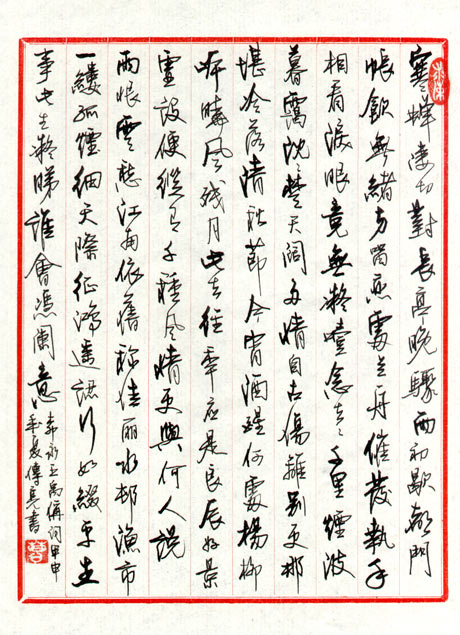 寒蟬淒切對長亭晚驟雨初歇都門
帳飲無緒方留戀處蘭舟催發執手
相看淚眼竟無凝噎念去々千里煙波
暮靄沈々楚天闊多情自古傷離別更那
堪冷落清秋節今宵酒醒何處楊柳
岸曉風殘月此去經年應是良辰好景
虛設便縱有千種風情更與何人說
雨恨雲愁江南依舊稱佳麗水邨漁市
一縷孤煙細天際征鴻遙認行如綴平生
事此時凝睇誰會馮闌意
柳永王禹偁詞甲申
年夏傳亮書